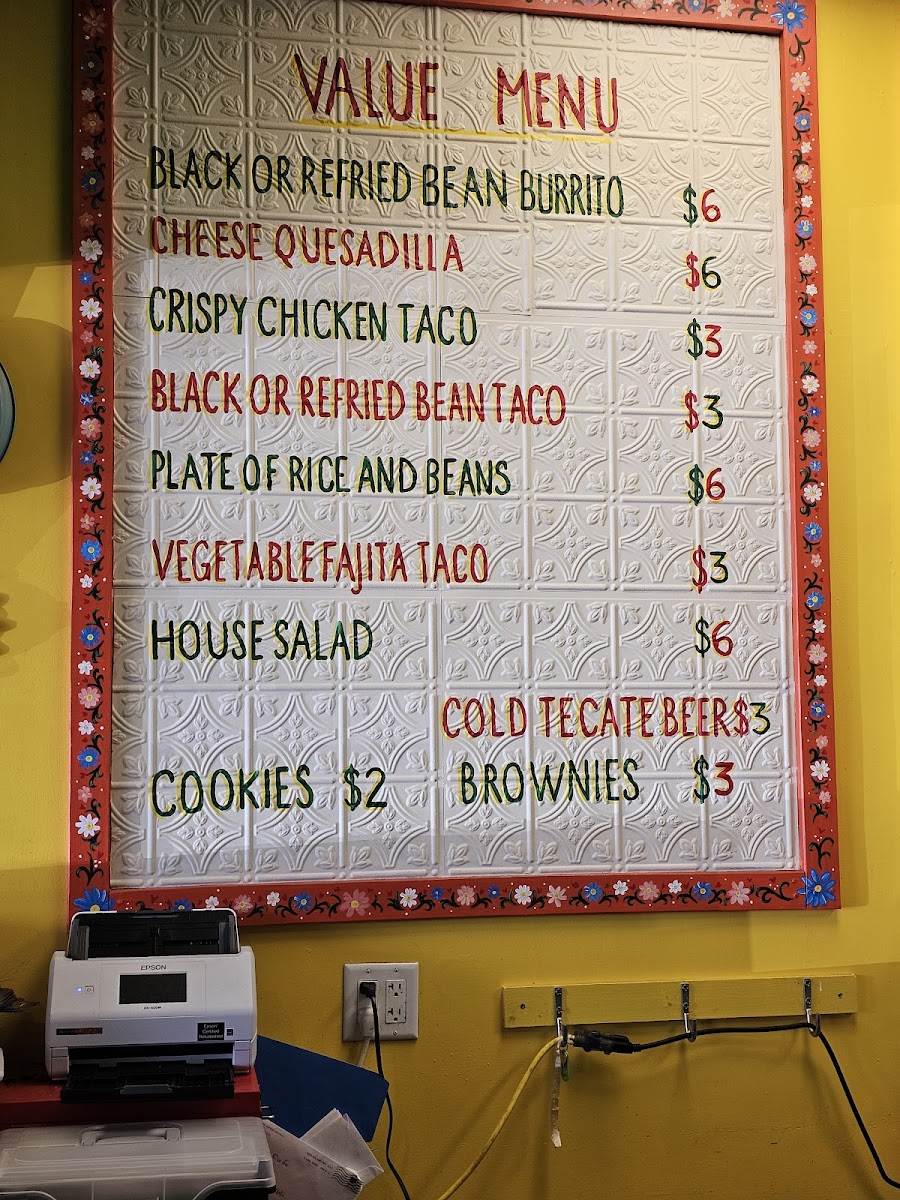 VALUE MENU
BLACK OR REFRIED BEAN BURRITO $6
CHEESE QUESADILLA $6
CRISPY CHICKEN TACO $3
BLACK OR REFRIED BEAN TACO $3
PLATE OF RICE AND BEANS $6
VEGETABLE FAJITA TACO $3
HOUSE SALAD $6
COLD TECATE BEER $3
COOKIES $2 BROWNIES $3
EPSON
Epson
Certified